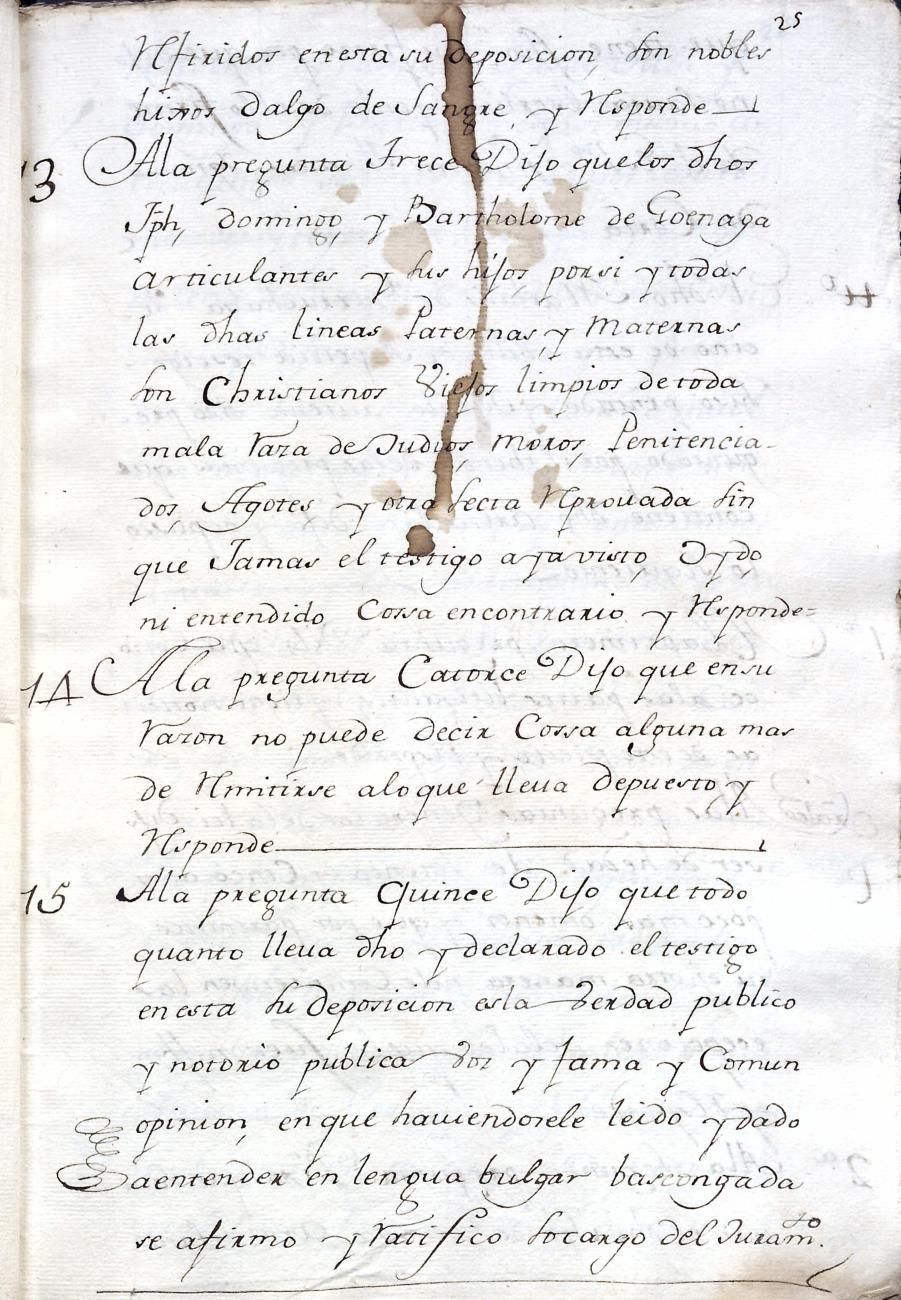 25
Rfiridos en esta su deposicion, son nobles
hixos dalgo de Sangre, y Rsponde
13 Ala pregunta Trece Dijo que los dhos
Jph, Domingo, y Bartholome de Goenaga
articulantes y sus hijos, por si y todas
las dhas lineas Paternas, y Maternas
son Christianos Viejos limpios de toda
mala Raza de Judios, Moros, Penitencia-
dos, Agotes y otra secta Rprouada sin
que Jamas el testigo aya visto, Oydo
ni entendido Cossa encontrario y Rsponde=
14 Ala pregunta Catorce Dijo que en su
Razon no puede decir Cossa alguna mas
de Rmitirse alo que lleua depuesto y
Rsponde
15 Ala pregunta Quince Dijo que todo
quanto lleua dho y declarado el testigo
en esta su deposicion es la Verdad publico
y notorio publica Voz y fama y Comun
opinion, en que haviendosele leido y dado
a entender en lengua bulgar bascongada
se afirmo y Ratifico socargo del Juramto.